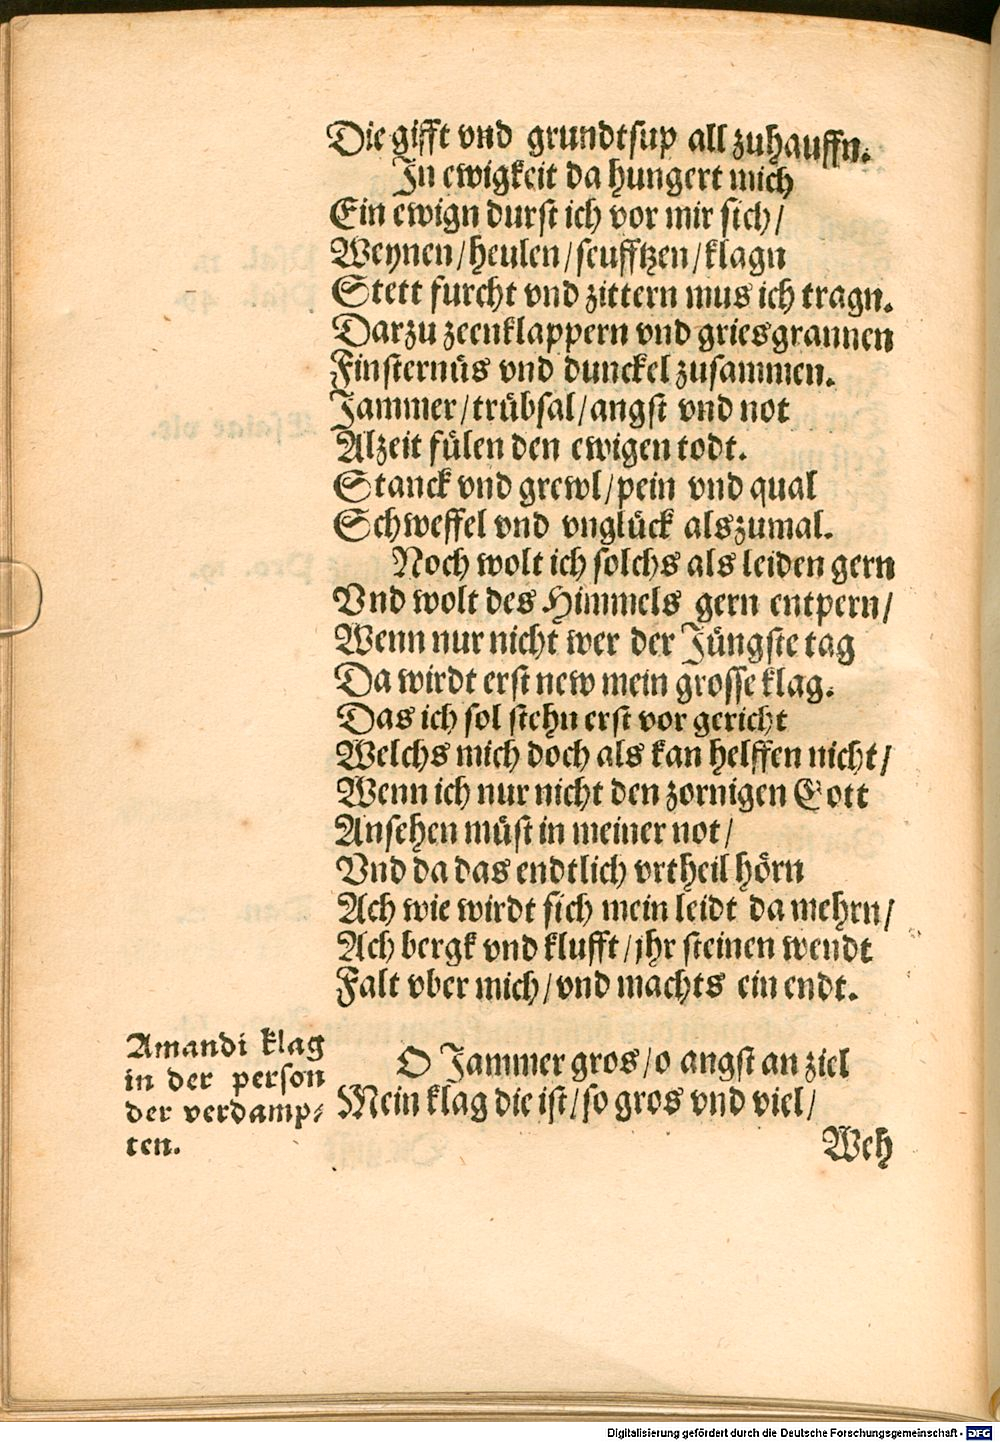 Die gifft vnd grundtsup all zuhauffn.
In ewigkeit da hungert mich
Ein ewign durst ich vor mir sich/
Weynen/heulen/seufftzen/klagn
Stett furcht vnd zittern mus ich tragn.
Darzu zeenklappern vnd griesgrannen
Finsternüs vnd dunckel zusammen.
Jammer/trübsal/angst vnd not
Alzeit fülen den ewigen todt.
Stanck vnd grewl/pein vnd qual
Schweffel vnd vnglück alszumal.
Noch wolt ich solchs als leiden gern
Vnd wolt des Himmels gern entpern/
Wenn nur nicht wer der Jüngste tag
Da wirdt erst new mein grosse klag.
Das ich sol stehn erst vor gericht
Welchs mich doch als kan helffen nicht/
Wenn ich nur nicht den zornigen Gott
Ansehen müst in meiner not/
Vnd da das endtlich vrtheil hörn
Ach wie wirdt sich mein leidt da mehrn/
Ach bergk vnd klufft/jhr steinen wendt
Falt vber mich/vnd machts ein endt.
Amandi klag
in der person
der verdamp-
ten.
O Jammer gros/o angst an ziel
Mein klag die ist/so gros vnd viel/
Weh
Digitalisierung gefördert durch die Deutsche Forschungsgemeinschaft - DFG